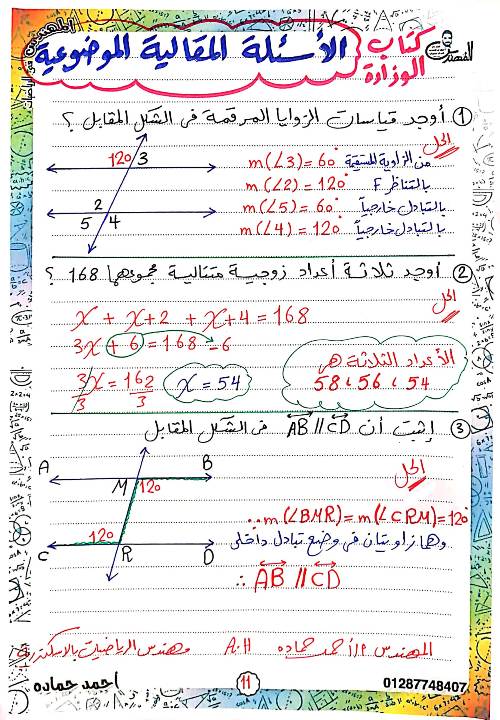 كتاب الوزارة
الأسئلة المقالية الموضوعية
المهندس
① أوجد قياسات الزوايا المرقمة فى الشكل المقابل ؟
الحل
120° 3
2
5 4
m(∠3) = 60° من الزاوية المستقيمة
m(∠2) = 120° بالتناظر F
m(∠5) = 60° بالتبادل خارجياً
m(∠4) = 120° بالتبادل خارجياً
② أوجد ثلاثة أعداد زوجية متتالية مجموعهما 168 ؟
الحل
x + x+2 + x+4 = 168
3x + 6 = 168 - 6
3x/3 = 162/3 x = 54
الأعداد الثلاثة هى
54 ، 56 ، 58
③ إثبت أن AB // CD فى الشكل المقابل
الحل
A B
M 120
120
C R D
∴ m(∠BMR) = m(∠CRM) = 120°
وهما زاويتان فى وضع تبادل داخلى
∴ AB // CD
المهندس م/أحمد حماده A.H مهندس الرياضيات بالاسكندرية
01287748407
11
احمد حماده